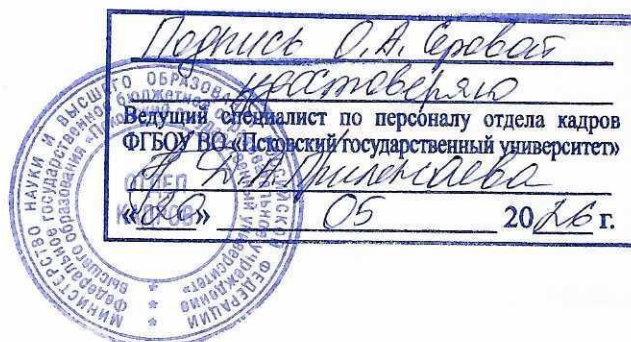 Подпись О.А. Серовой
удостоверяю
Ведущий специалист по персоналу отдела кадров
ФГБОУ ВО «Псковский государственный университет»
Д.А.
«20» 05 2026 г.
МИНИСТЕРСТВО НАУКИ И ВЫСШЕГО ОБРАЗОВАНИЯ РОССИЙСКОЙ ФЕДЕРАЦИИ
Федеральное государственное бюджетное образовательное учреждение
высшего образования «Псковский государственный университет»
ОТДЕЛ
КАДРОВ